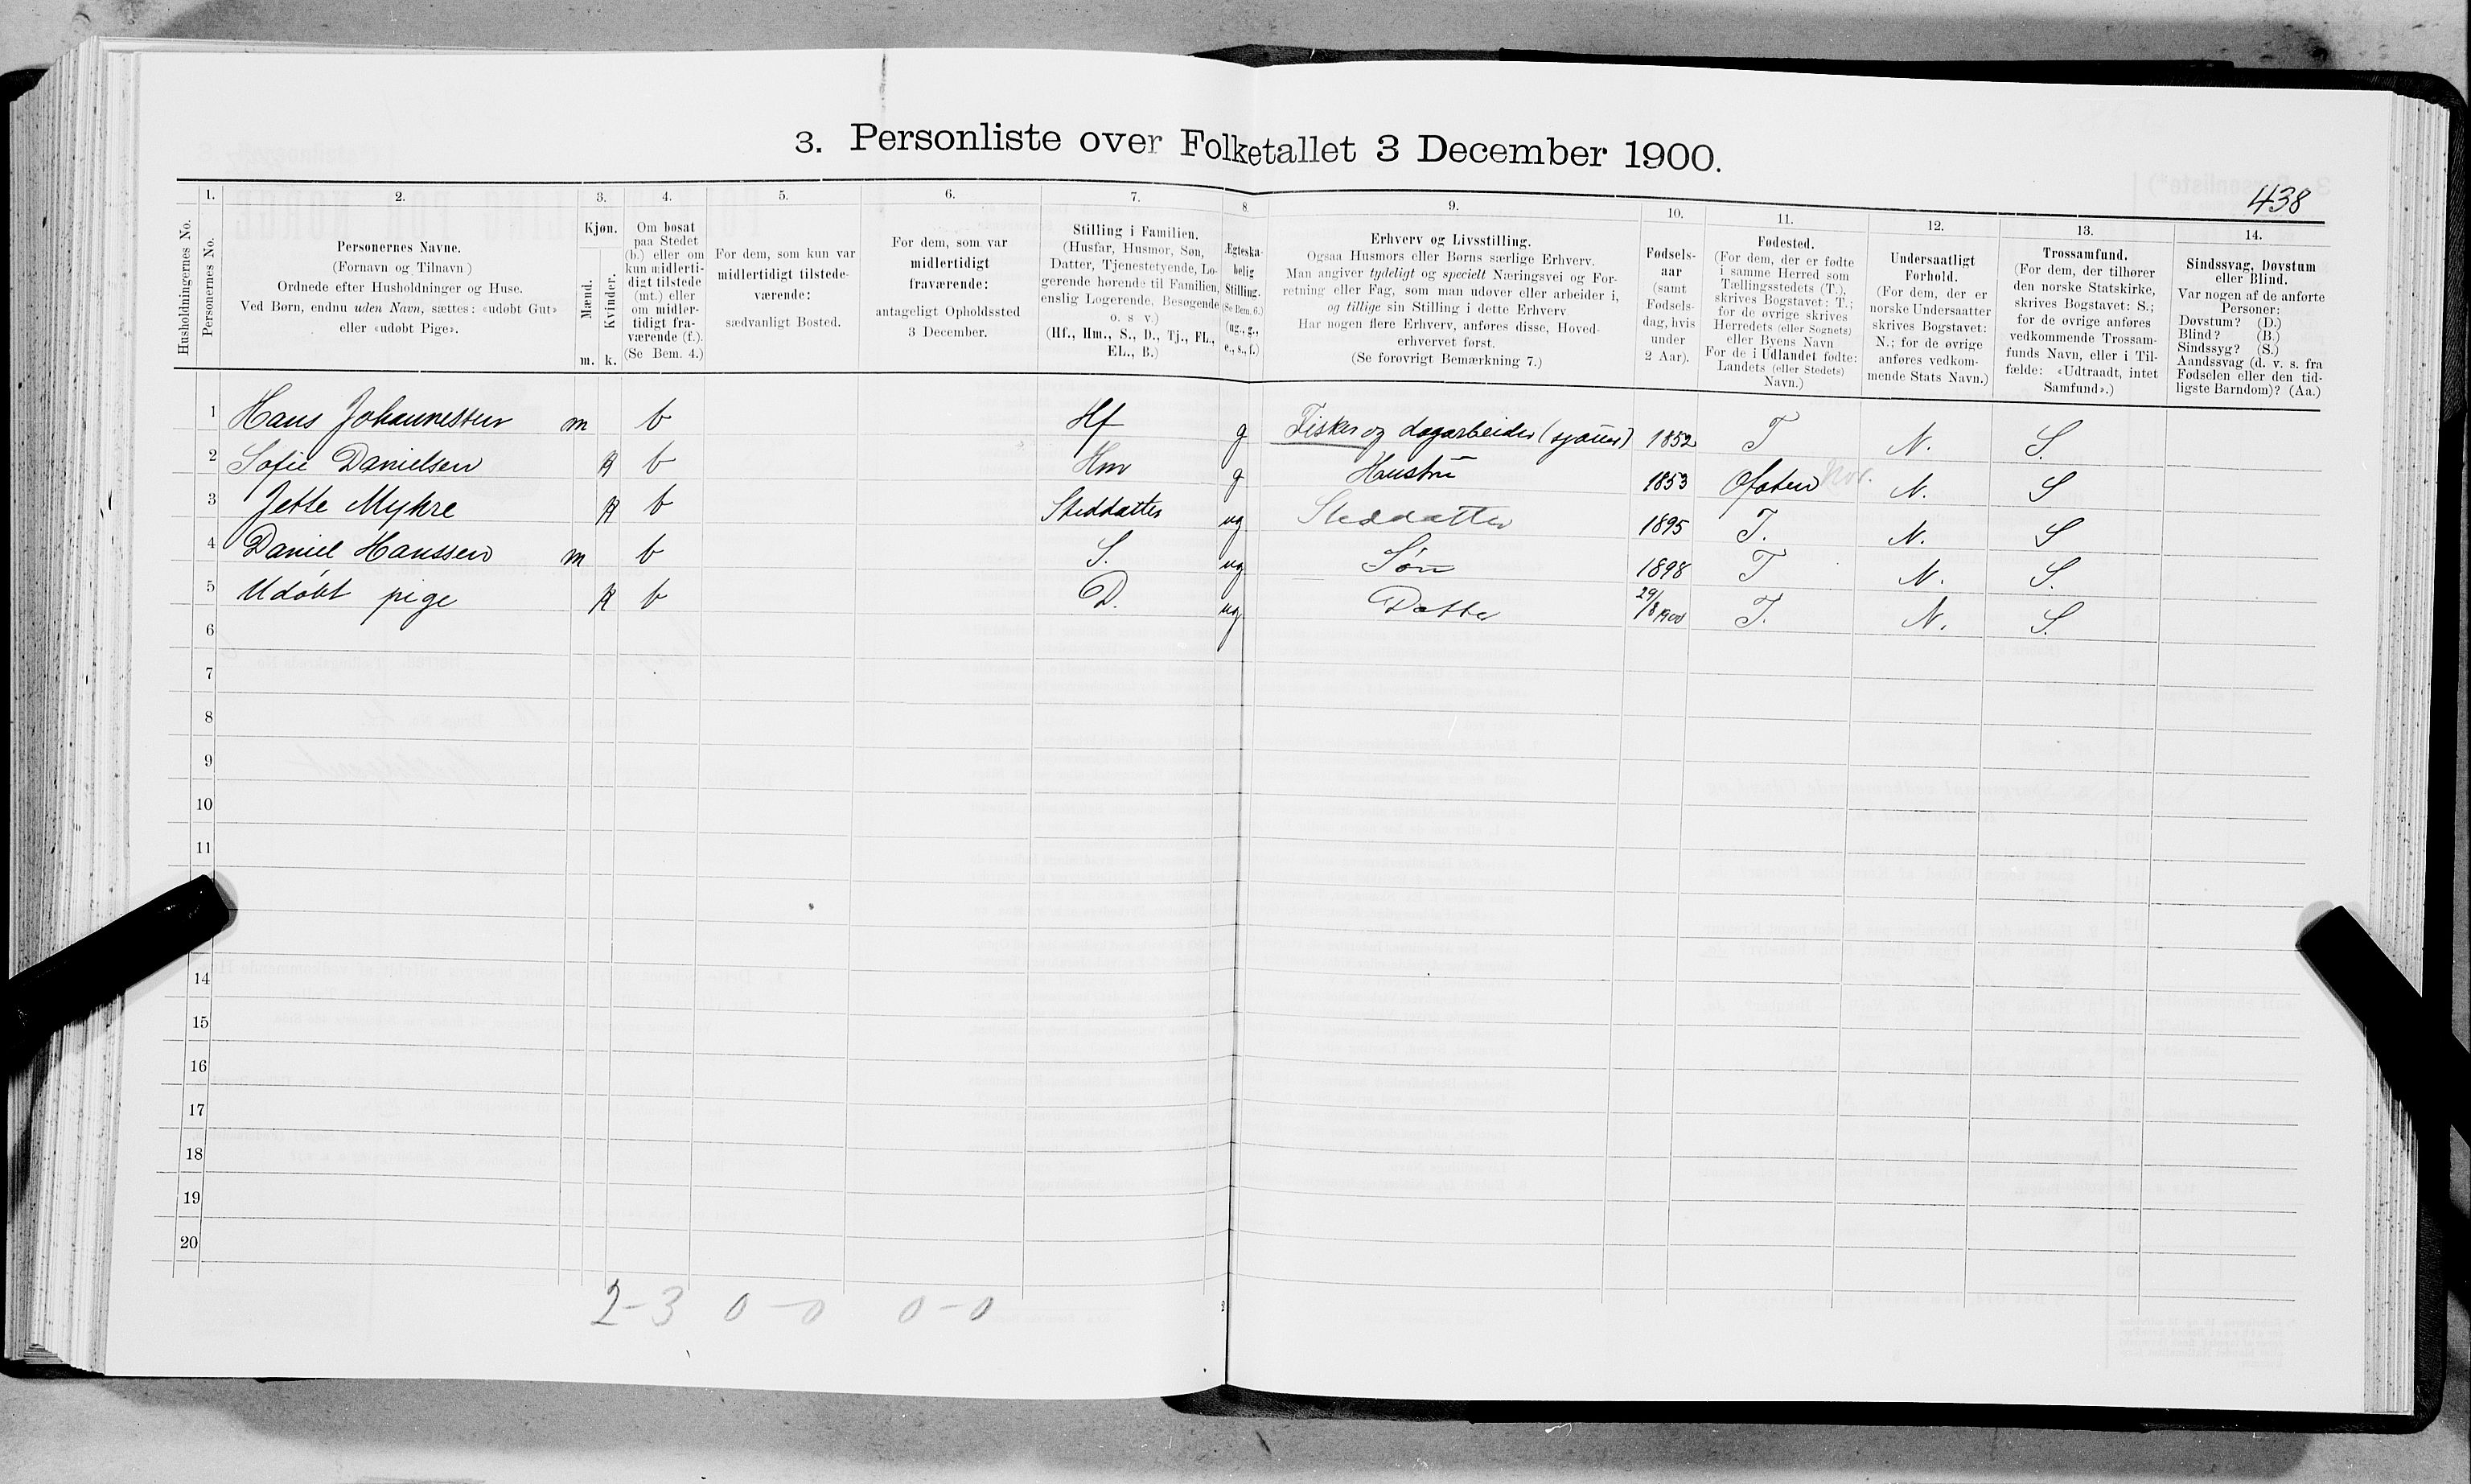 3. Personliste over Folketallet 3 December 1900.
438
Husholdningernes No.
1.
Personernes No.
2.
Personernes Navne.
(Fornavn og Tilnavn)
Ordnede efter Husholdninger og Huse.
Ved Børn, endnu uden Navn, sættes: «udøbt Gut»
eller «udøbt Pige».
3.
Kjøn.
Mænd.
Kvinder.
m. k.
4.
Om bosat
paa Stedet
(b.) eller om
kun midlerti-
digt tilstede
(mt.) eller
om midler-
tidigt fra-
værende (f.).
(Se Bem. 4.)
5.
For dem, som kun var
midlertidigt tilstede-
værende:
sædvanligt Bosted.
6.
For dem, som var
midlertidigt
fraværende:
antageligt Opholdssted
3 December.
7.
Stilling i Familien.
(Husfar, Husmor, Søn,
Datter, Tjenestetyende, Lo-
gerende hørende til Familien,
enslig Logerende, Besøgende
o. s v.)
(Hf., Hm., S., D., Tj., FL.,
EL., B.)
8.
Ægteska-
belig
Stilling.
(Se Bem. 6.)
(ug., g.,
e., s., f.)
9.
Erhverv og Livsstilling.
Ogsaa Husmors eller Børns særlige Erhverv.
Man angiver tydeligt og specielt Næringsvei og For-
retning eller Fag, som man udøver eller arbeider i,
og tillige sin Stilling i dette Erhverv.
Har nogen flere Erhverv, anføres disse, Hoved-
erhvervet først.
(Se forøvrigt Bemærkning 7.)
10.
Fødsels-
aar
(samt
Fødsels-
dag, hvis
under
2 Aar).
11.
Fødested.
(For dem, der er fødte
i samme Herred som
Tællingsstedets (T.),
skrives Bogstavet: T.;
for de øvrige skrives
Herredets (eller Sognets)
eller Byens Navn
For de i Udlandet fødte:
Landets (eller Stedets)
Navn.)
12.
Undersaatligt
Forhold.
(For dem, der er
norske Undersaatter
skrives Bogstavet:
N.; for de øvrige
anføres vedkom-
mende Stats Navn.)
13.
Trossamfund.
(For dem, der tilhører
den norske Statskirke,
skrives Bogstavet: S.;
for de øvrige anføres
vedkommende Trossam-
funds Navn, eller i Til-
fælde: «Udtraadt, intet
Samfund».)
14.
Sindssvag, Døvstum
eller Blind.
Var nogen af de anførte
Personer:
Døvstum? (D.)
Blind? (B.)
Sindssyg? (S.)
Aandssvag (d. v. s. fra
Fødselen eller den tid-
ligste Barndom)? (Aa.)
1 Hans Johannessen m b Hf g Fisker og dagarbeider (sjauer) 1852 T N. S.
2 Sofie Danielsen k b Hm g Hustru 1853 Ofoten N. S
3 Jette Myhre k b Steddatter ug Steddatter 1895 T. N. S
4 Daniel Hanssen m b S. ug Søn 1898 T N. S.
5 Udøbt pige k b D. ug Datter 29/8 1900 T. N. S.
6
7
8
9
10
11
14
15
16
17
18
19
20
2-3 0-0 0-0